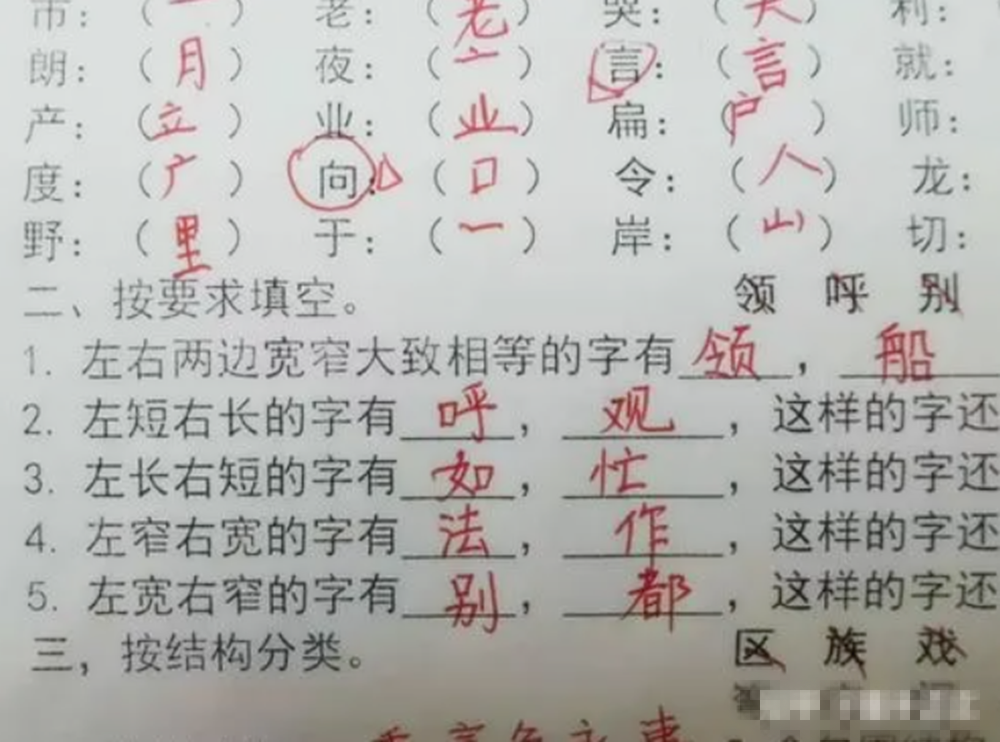 市：（一） 老：（老） 哭：（犬） 利：
朗：（月） 夜：（亠） 言：（言） 就：
产：（立） 业：（业） 扁：（户） 师：
度：（广） 向：（口） 令：（人） 龙：
野：（里） 于：（一） 岸：（山） 切：
二、按要求填空。 领 呼 别
1. 左右两边宽窄大致相等的字有领，船
2. 左短右长的字有呼，观，这样的字还
3. 左长右短的字有如，忙，这样的字还
4. 左窄右宽的字有法，作，这样的字还
5. 左宽右窄的字有别，都，这样的字还
三，按结构分类。 区 族 戏